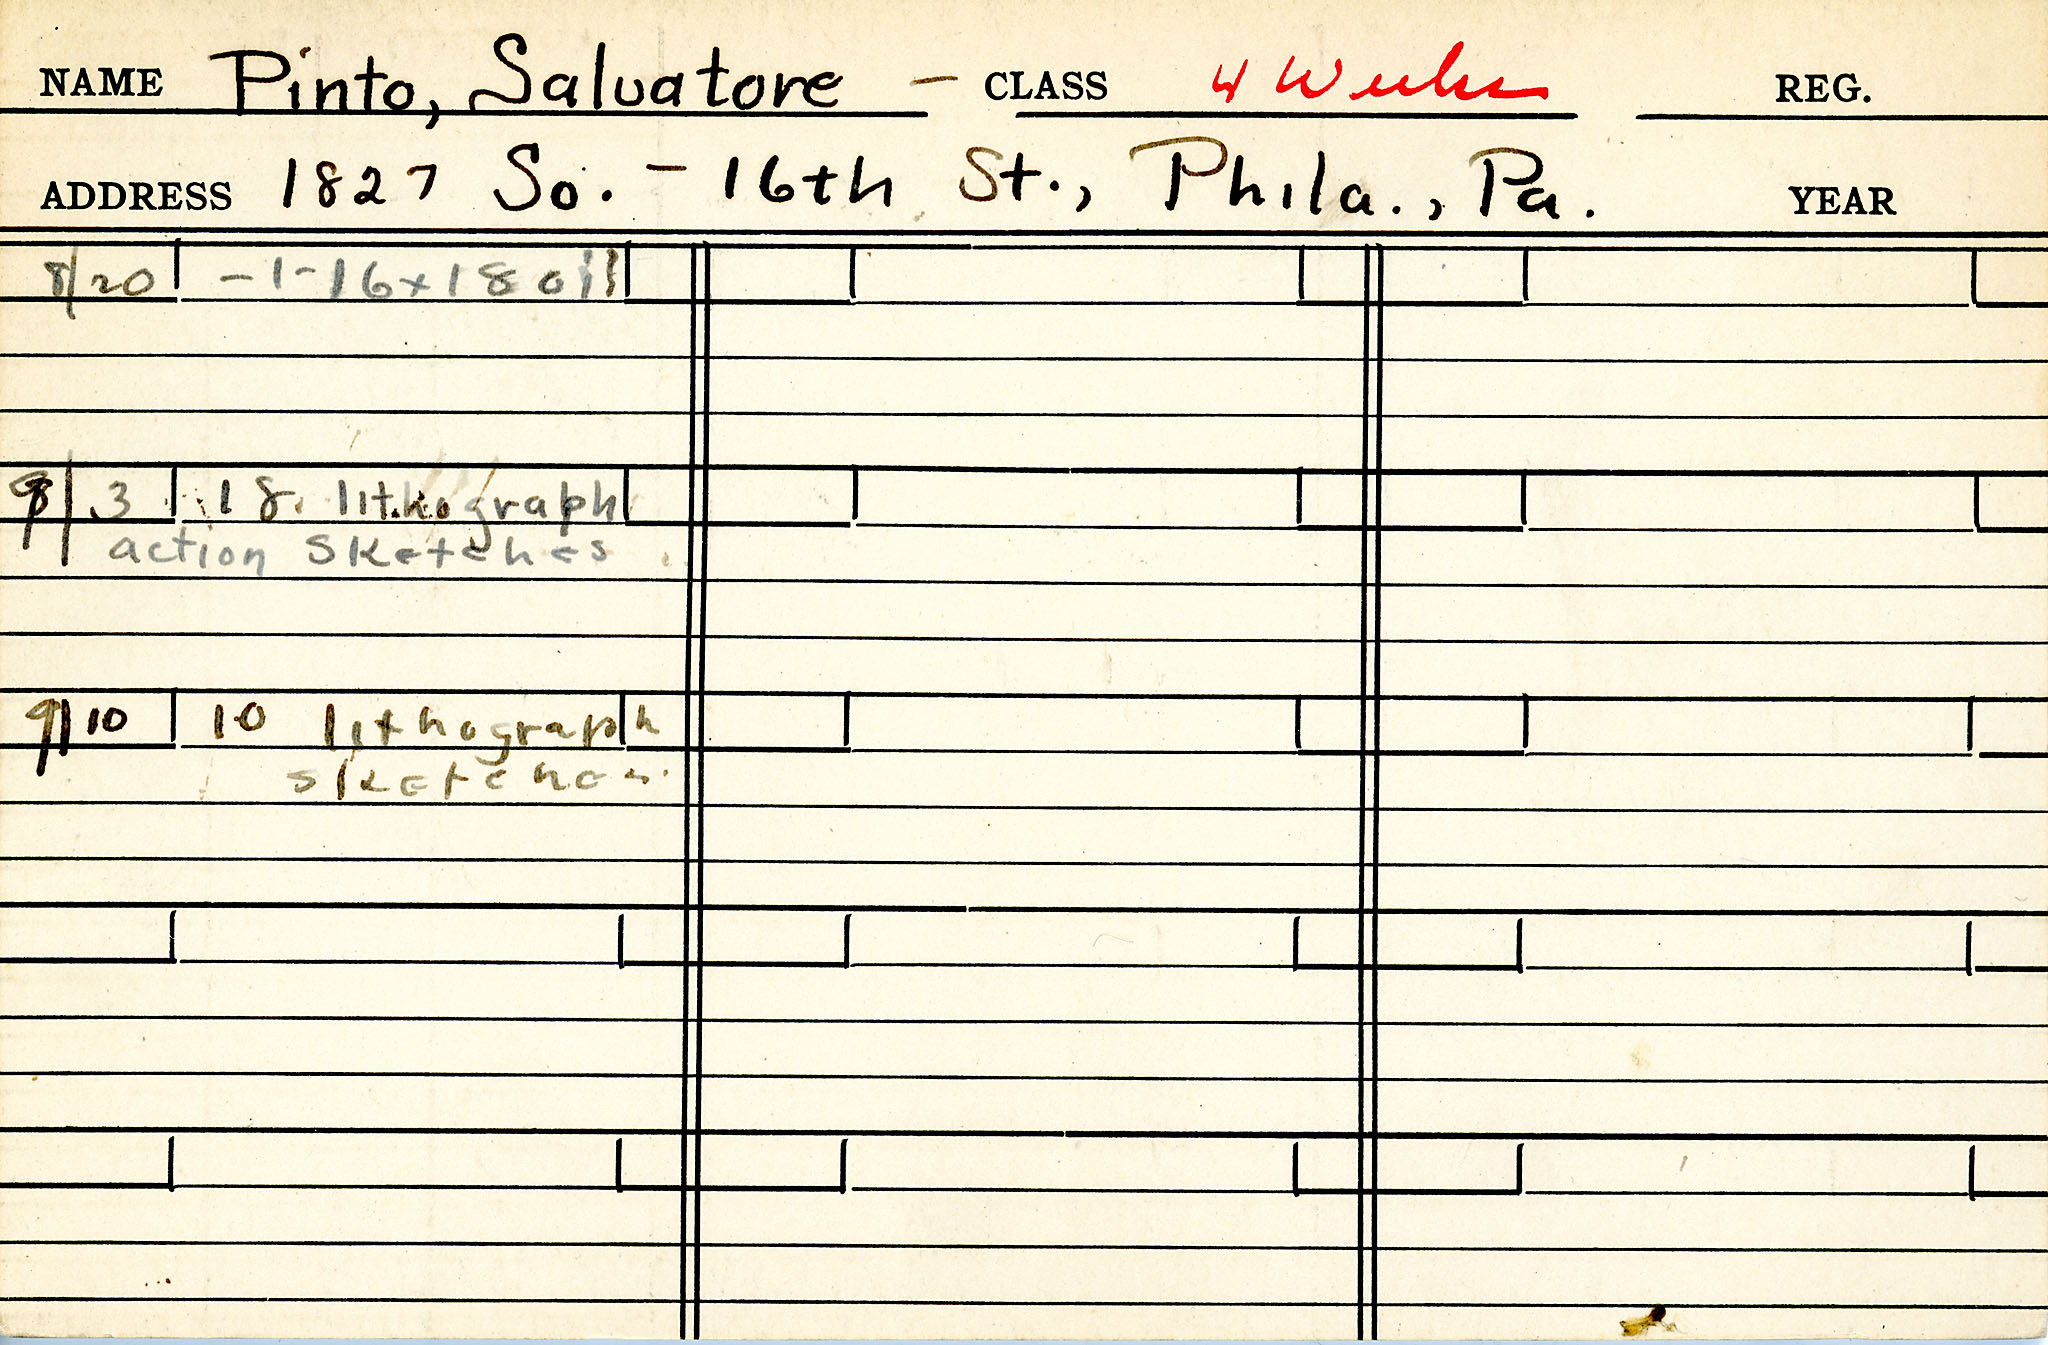 NAME Pinto, Salvatore - CLASS 4 Weeks REG.
ADDRESS 1827 So. - 16th St., Phila., Pa. YEAR
8/20 -1-16x18 oil
9/3 18. lithograph
action sketches
9/10 10 lithograph
sketches.